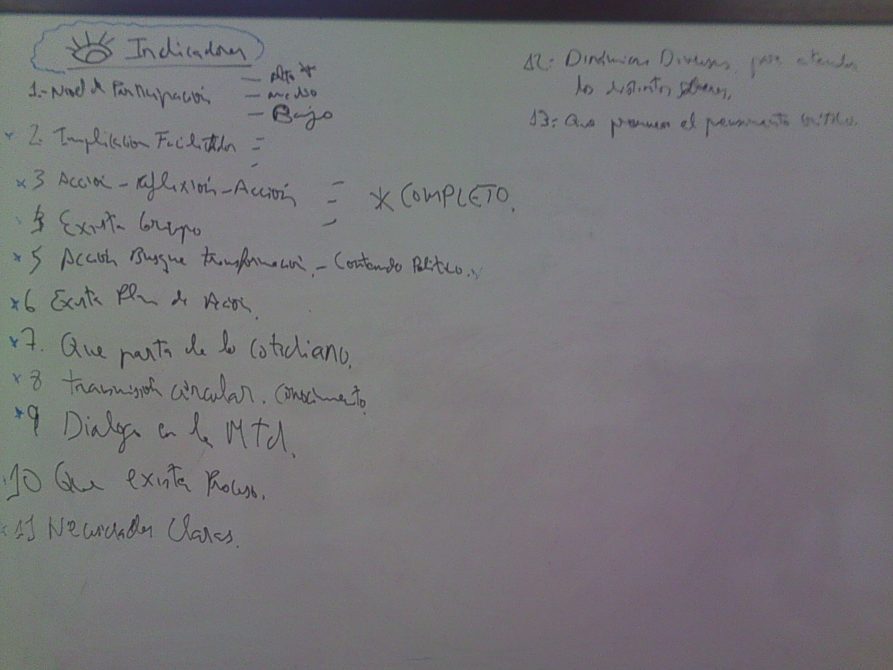 Indicadores
1.- Nivel de Participación
— Alto
— medio
— Bajo
2. Implicación Facilitador
3 Acción - reflexión - Acción
* COMPLETO.
4 Exista Grupo
5 Acción Busque transformación. - Contenido Político.
6 Exista Plan de Acción.
7. Que parta de lo cotidiano.
8 transmisión circular. conocimiento.
9 Dialogo en la Mtd.
10 Que exista Proceso.
11 Necesidades Claras.
12: Dinámicas Diversas para atender
los distintos saberes.
13: Que promueva el pensamiento crítico.